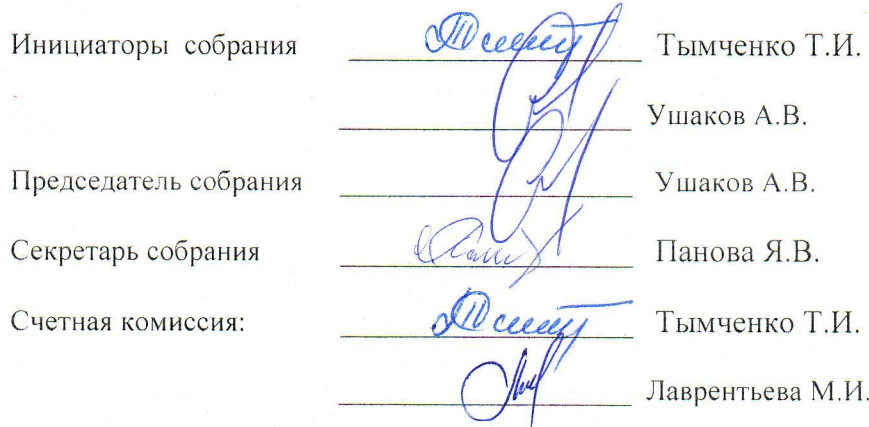 Инициаторы собрания Тымченко Т.И.
Ушаков А.В.
Председатель собрания Ушаков А.В.
Секретарь собрания Панова Я.В.
Счетная комиссия: Тымченко Т.И.
Лаврентьева М.И.